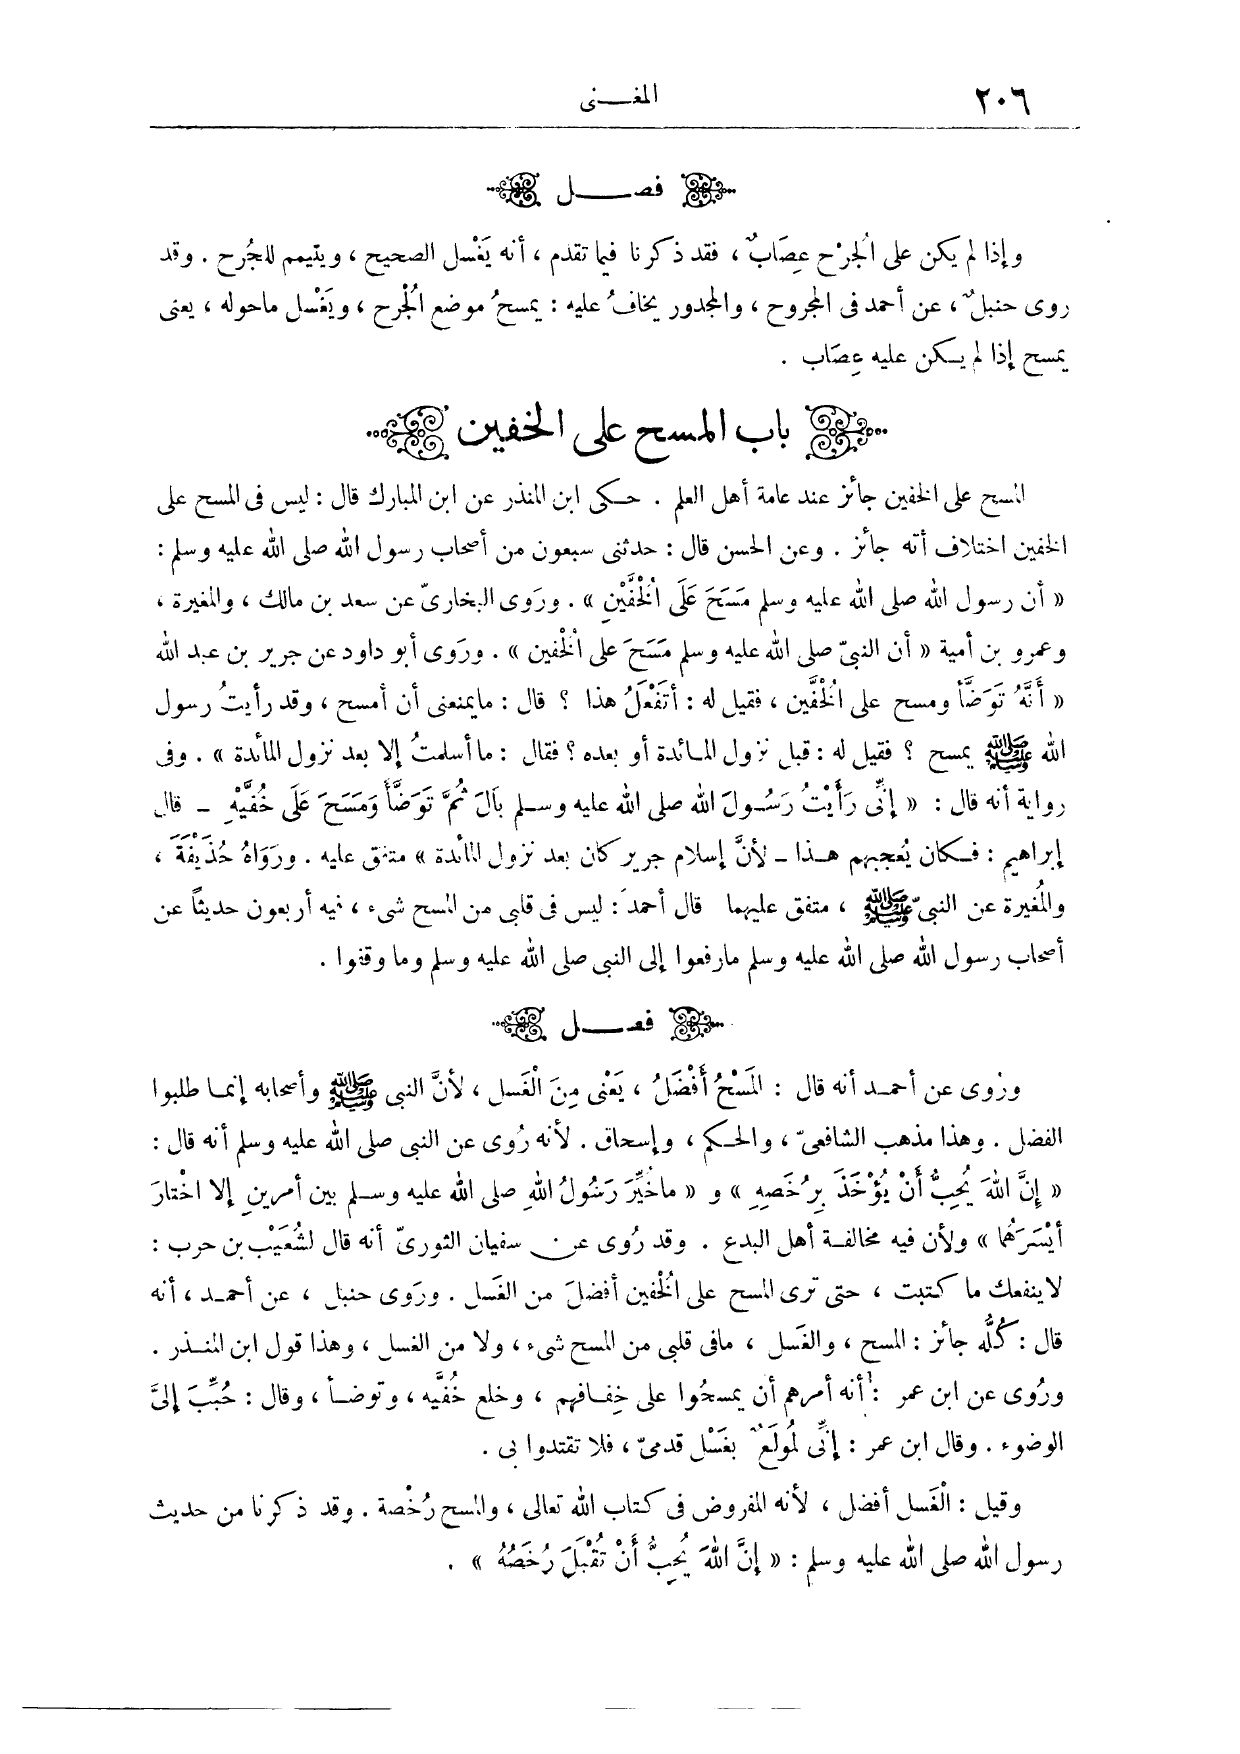 ٢٠٦
المغنى
فصل
وإذا لم يكن على الجرْح عِصَابٌ ، فقد ذكرنا فيما تقدم ، أنه يَغْسل الصحيح ، ويتيمم للجُرح . وقد
روى حنبلٌ ، عن أحمد فى المجروح ، والمجدور يخافُ عليه : يمسحُ موضع الجُرح ، ويَغْسل ماحوله ، يعنى
يمسح إذا لم يكن عليه عِصَاب .
باب المسح على الخفين
المسح على الخفين جائز عند عامة أهل العلم . حكى ابن المنذر عن ابن المبارك قال : ليس فى المسح على
الخفين اختلاف أنه جائز . وعن الحسن قال : حدثنى سبعون من أصحاب رسول الله صلى الله عليه وسلم :
« أن رسول الله صلى الله عليه وسلم مَسَحَ عَلَى الْخُفَّيْنِ » . ورَوى البخارىّ عن سعد بن مالك ، والمغيرة ،
وعمرو بن أمية « أن النبىّ صلى الله عليه وسلم مَسَحَ على الْخُفين » . ورَوى أبو داود عن جرير بن عبد الله
« أَنَّهُ تَوَضَّأَ ومسح على الْخُفَّين ، فقيل له : أتَفْعَلُ هذا ؟ قال : مايمنعنى أن أمسح ، وقد رأيتُ رسول
الله ﷺ يمسح ؟ فقيل له : قبل نزول المائدة أو بعده ؟ فقال : ما أسلمتُ إلا بعد نزول المائدة » . وفى
رواية أنه قال : « إِنِّى رَأَيْتُ رَسُولَ الله صلى الله عليه وسلم بَالَ ثُمَّ تَوَضَّأَ وَمَسَحَ عَلَى خُفَّيْهِ ــ قال
إبراهيم : فكان يُعجبهم هذا ــ لأنَّ إسلام جرير كان بعد نزول المائدة » متفق عليه . ورَوَاهُ حُذَيْفَةَ ،
والمُغيرة عن النبىّ ﷺ ، متفق عليهما قال أحمد : ليس فى قلبى من المسح شىء ، فيه أربعون حديثاً عن
أصحاب رسول الله صلى الله عليه وسلم مارفعوا إلى النبى صلى الله عليه وسلم وما وقفوا .
فصل
ورُوى عن أحمد أنه قال : المَسْحُ أَفْضَلُ ، يَعْنى مِنَ الْغَسل ، لأنَّ النبى ﷺ وأصحابه إنما طلبوا
الفضل . وهذا مذهب الشافعىّ ، والحكم ، وإسحاق . لأنه رُوى عن النبى صلى الله عليه وسلم أنه قال :
« إِنَّ اللهَ يُحِبُّ أَنْ يُؤْخَذَ بِرُخَصِهِ » و « ماخُيِّرَ رَسُولُ اللهِ صلى الله عليه وسلم بين أمرينِ إلا اختارَ
أيْسَرَهُما » ولأن فيه مخالفة أهل البدع . وقد رُوى عن سفيان الثورىّ أنه قال لشُعَيْب بن حرب :
لاينفعك ما كتبت ، حتى ترى المسح على الْخُفين أفضلَ من الغَسل . ورَوى حنبل ، عن أحمد ، أنه
قال : كُلُّه جائز : المسح ، والغَسل ، مافى قلبى من المسح شىء ، ولا من الغسل ، وهذا قول ابن المنذر .
ورُوى عن ابن عمر : أنه أمرهم أن يمسحُوا على خِفافهم ، وخلع خُفَّيه ، وتوضأ ، وقال : حُبِّبَ إلىَّ
الوضوء . وقال ابن عمر : إنِّى لَمُولَعٌ بغَسْل قدمىّ ، فلا تقتدوا بى .
وقيل : الْغَسل أفضل ، لأنه المفروض فى كتاب الله تعالى ، والمسح رُخْصة . وقد ذكرنا من حديث
رسول الله صلى الله عليه وسلم : « إِنَّ اللهَ يُحِبُّ أَنْ تُقْبَلَ رُخَصُهُ » .